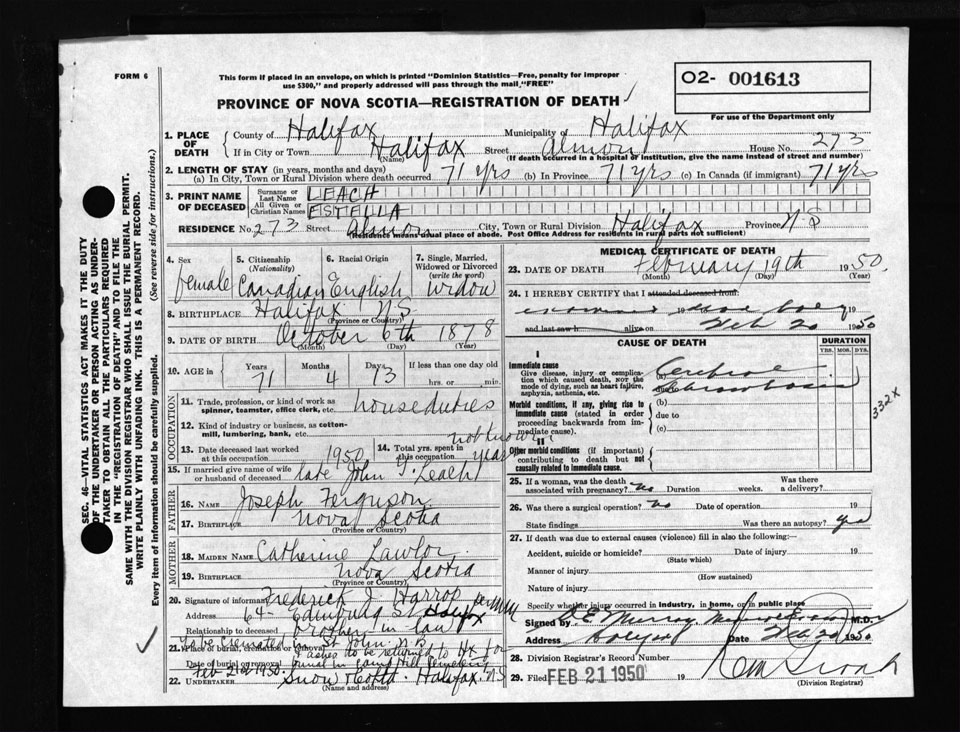 FORM 6
This form if placed in an envelope, on which is printed "Dominion Statistics—Free, penalty for improper
use $300," and properly addressed will pass through the mail "FREE"
O2- 001613
For use of the Department only
PROVINCE OF NOVA SCOTIA—REGISTRATION OF DEATH
SEC. 46—VITAL STATISTICS ACT MAKES IT THE DUTY
OF THE UNDERTAKER OR PERSON ACTING AS UNDER-
TAKER TO OBTAIN ALL THE PARTICULARS REQUIRED
IN THE "REGISTRATION OF DEATH" AND TO FILE THE
SAME WITH THE DIVISION REGISTRAR WHO SHALL ISSUE THE BURIAL PERMIT.
WRITE PLAINLY WITH UNFADING INK. THIS IS A PERMANENT RECORD.
Every item of information should be carefully supplied. (See reverse side for instructions.)
1. PLACE OF DEATH County of Halifax Municipality of Halifax
If in City or Town Halifax Street Almon House No. 273
(Name) (If death occurred in a hospital or institution, give the name instead of street and number)
2. LENGTH OF STAY (in years, months and days)
(a) In City, Town or Rural Division where death occurred 71 yrs (b) In Province 71 yrs (c) In Canada (if immigrant) 71 yrs
3. PRINT NAME OF DECEASED Surname or Last Name LEACH
All Given or Christian Names ESTELLA
RESIDENCE No. 273 Street Almon City, Town or Rural Division Halifax Province N.S
(Residence means usual place of abode. Post Office Address for residents in rural parts not sufficient)
4. Sex 5. Citizenship (Nationality) 6. Racial Origin 7. Single, Married, Widowed or Divorced (write the word)
female Canadian English Widow
8. BIRTHPLACE Halifax N.S.
(Province or Country)
9. DATE OF BIRTH October 6th 1878
(Month) (Day) (Year)
10. AGE in Years Months Days If less than one day
71 4 13 hrs. or min.
OCCUPATION
11. Trade, profession, or kind of work as
spinner, teamster, office clerk, etc. house duties
12. Kind of industry or business, as cotton-
mill, lumbering, bank, etc.
13. Date deceased last worked at this occupation 1950 14. Total yrs. spent in this occupation not known years
15. If married give name of wife
or husband of deceased late John Leach
FATHER
16. NAME Joseph Ferguson
17. BIRTHPLACE Nova Scotia
(Province or Country)
MOTHER
18. MAIDEN NAME Catherine Lawlor
19. BIRTHPLACE Nova Scotia
(Province or Country)
20. Signature of informant Frederick J. Harrop
Address 64 - Edinburg St. Halifax
Relationship to deceased brother in law
21. Place of burial, cremation or removal to be cremated in St John N.B
& ashes to be returned to Hx for
Date of burial or removal Feb 21st 1950 burial in Camp Hill Cemetery
22. UNDERTAKER Snow & Co Ltd. Halifax. N.S
(Name and address)
MEDICAL CERTIFICATE OF DEATH
23. DATE OF DEATH February 19th 1950
(Month) (Day) (Year)
24. I HEREBY CERTIFY that I attended deceased from:
examined body
and last saw h alive on Feb 20 1950
CAUSE OF DEATH DURATION
YRS. MOS. DYS.
I
Immediate cause
Give disease, injury or complica-
tion which caused death, not the
mode of dying, such as heart failure,
asphyxia, asthenia, etc.
(a) Cerebral
due to Thrombosis
Morbid conditions, if any, giving rise to
immediate cause (stated in order
proceeding backwards from im-
mediate cause).
(b)
due to
(c)
332X
II
Other morbid conditions (if important)
contributing to death but not
causally related to immediate cause.
25. If a woman, was the death associated with pregnancy? No Duration weeks. Was there a delivery?
26. Was there a surgical operation? No Date of operation 19
State findings Was there an autopsy? yes
27. If death was due to external causes (violence) fill in also the following:
Accident, suicide or homicide? Date of injury 19
(State which)
Manner of injury
(How sustained)
Nature of injury
Specify whether injury occurred in Industry, in home, or in public place
Signed by E Murray M.D.
Address Halifax Date Feb 20 1950
28. Division Registrar's Record Number
29. Filed FEB 21 1950 19
(Division Registrar)